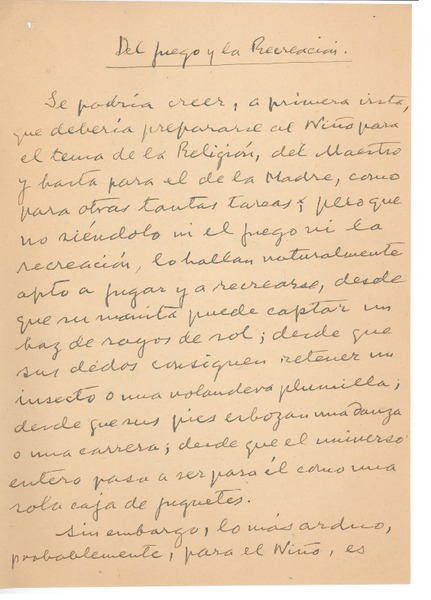 Del juego y la Recreación.
Se podría creer, a primera vista,
que debería prepararse al Niño para
el tema de la Religión, del Maestro
y hasta para el de la Madre, como
para otras tantas tareas; pero que
no siéndolo ni el juego ni la
recreación, lo hallan naturalmente
apto a jugar y a recrearse, desde
que su manita puede captar un
haz de rayos de sol; desde que
sus dedos consiguen retener un
insecto o una volandera plumilla;
desde que sus pies esbozan una danza
o una carrera; desde que el universo
entero pasa a ser para él como una
sola caja de juguetes.
Sin embargo, lo más arduo,
probablemente, para el Niño, es